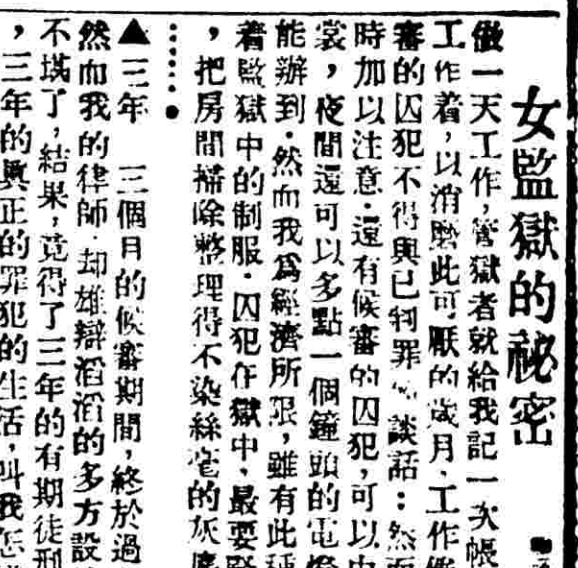 女監獄的祕密
做一天工作，管獄者就給我記一次帳
工作着，以消磨此可厭的歲月．工作
審的囚犯不得與已判罪的談話：然而
時加以注意．還有候審的囚犯，可以
裳，夜間還可以多點一個鐘頭的電燈
能辦到．然而我爲經濟所限，雖有此種
着監獄中的制服．囚犯在獄中，最要緊
，把房間掃除整理得不染絲毫的灰塵
……．
▲三年　三個月的候審期間，終於過
然而我的律師．却雄辯滔滔的多方設
不堪了，結果，竟得了三年的有期徒刑
，三年的眞正的罪犯的生活，叫我怎